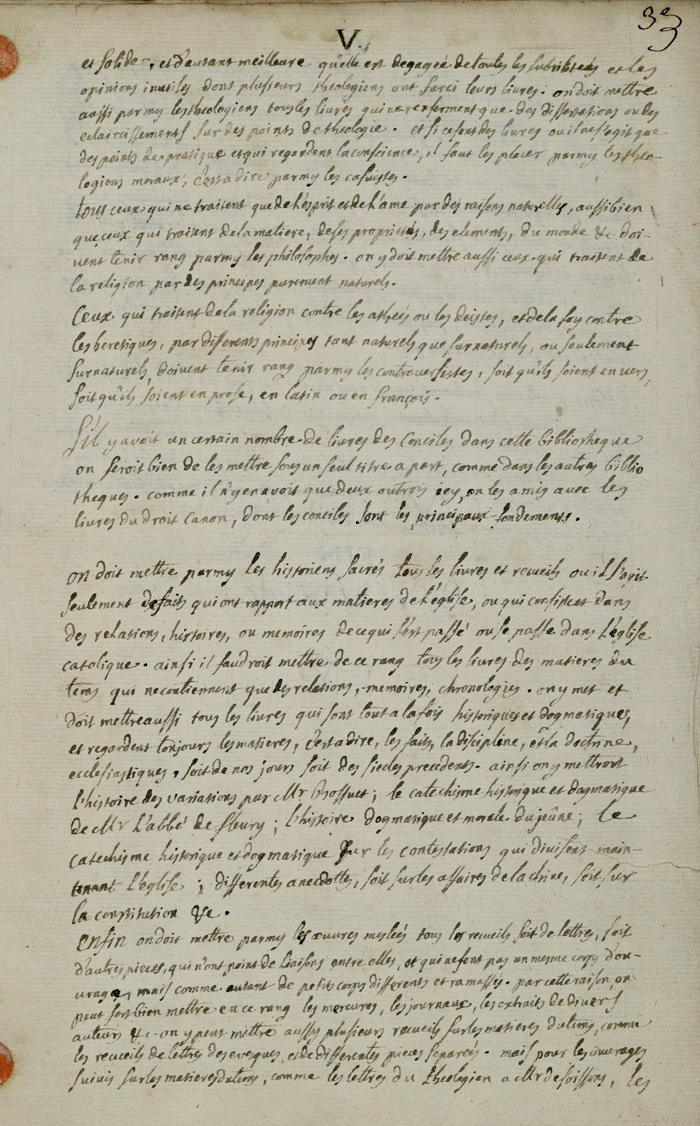 33
V.
et solide, et d'autant meilleure qu'elle est degageé de toutes les subtilités et les
opinions inutiles dont plusieurs theologiens ont farci leurs livres. on doit mettre
aussi parmy les theologiens tous les livres qui ne renferment que des dissertations ou des
eclaircissements sur des points de theologie. et si ce sont des livres ou il ne s'agit que
des points de pratique et qui regardent la conscience, il faut les placer parmy les theo-
logiens moraux, c'est a dire parmy les casuistes.
tous ceux qui ne traitent que de l'esprit et de l'ame par des raisons naturelles, aussi bien
que ceux qui traitent de la matiere, de ses proprietés, des elements, du monde &c doi-
vent tenir rang parmy les philosophes. on y doit mettre aussi ceux qui traitent de
la religion par des principes purement naturels.
Ceux qui traitent de la religion contre les atheés ou les deistes, et de la foy contre
les heretiques, par differents principes tant naturels que surnaturels, ou seulement
surnaturels, doivent tenir rang parmy les controversistes, soit qu'ils soient en vers,
soit qu'ils soient en prose, en latin ou en françois.
S'il y avoit un certain nombre de livres des Conciles dans cette bibliotheque
on feroit bien de les mettre sous un seul titre a part, comme dans les autres biblio
theques. comme il n'y en avoit que deux ou trois icy, on les a mis avec les
livres du droit Canon, dont les conciles sont les principaux fondements.
on doit mettre parmy les historiens sacrés tous les livres et recueils ou il s'agit
seulement de faits qui ont rapport aux matieres de l'église, ou qui consistent dans
des relations, histoires, ou memoires de ce qui s'est passé ou se passe dans l'église
catolique. ainsi il faudroit mettre de ce rang tous les livres des matieres du
tems qui ne contiennent que des relations, memoires, chronologies. on y met et
doit mettre aussi tous les livres qui sont tout a la fois historiques et dogmatiques,
et regardent toujours les matieres, c'est a dire, les faits, la discipline, et la doctrine,
ecclesiastiques, soit de nos jours soit des siecles precedents. ainsi on y mettroit
l'histoire des variations par Mr Bossuet; le catechisme historique et dogmatique
de Mr L'abbé de fleury; l'histoire dogmatique et morale du jeûne; le
catechisme historique et dogmatique sur les contestations qui divisent main-
tenant l'église; differentes anecdottes, soit sur les affaires de la chine, soit sur
la constitution &c.
enfin on doit mettre parmy les œuvres mesleés tous les recueils soit de lettres, soit
d'autres pieces, qui n'ont point de liaisons entre elles, et qui ne font pas un mesme corps d'ou-
vrage, mais comme autant de petits corps differents et ramassés. par cette raison, on
peut fort bien mettre en ce rang les mercures, les journaux, les extraits de divers
auteurs &c. on y peut mettre aussy plusieurs recueils sur les matieres du tems, comme
les recueils de lettres des evesques, et de differentes pieces separeés. mais pour les ouvrages
suivis sur les matieres du tems, comme les lettres du theologien a Mr de soissons, les